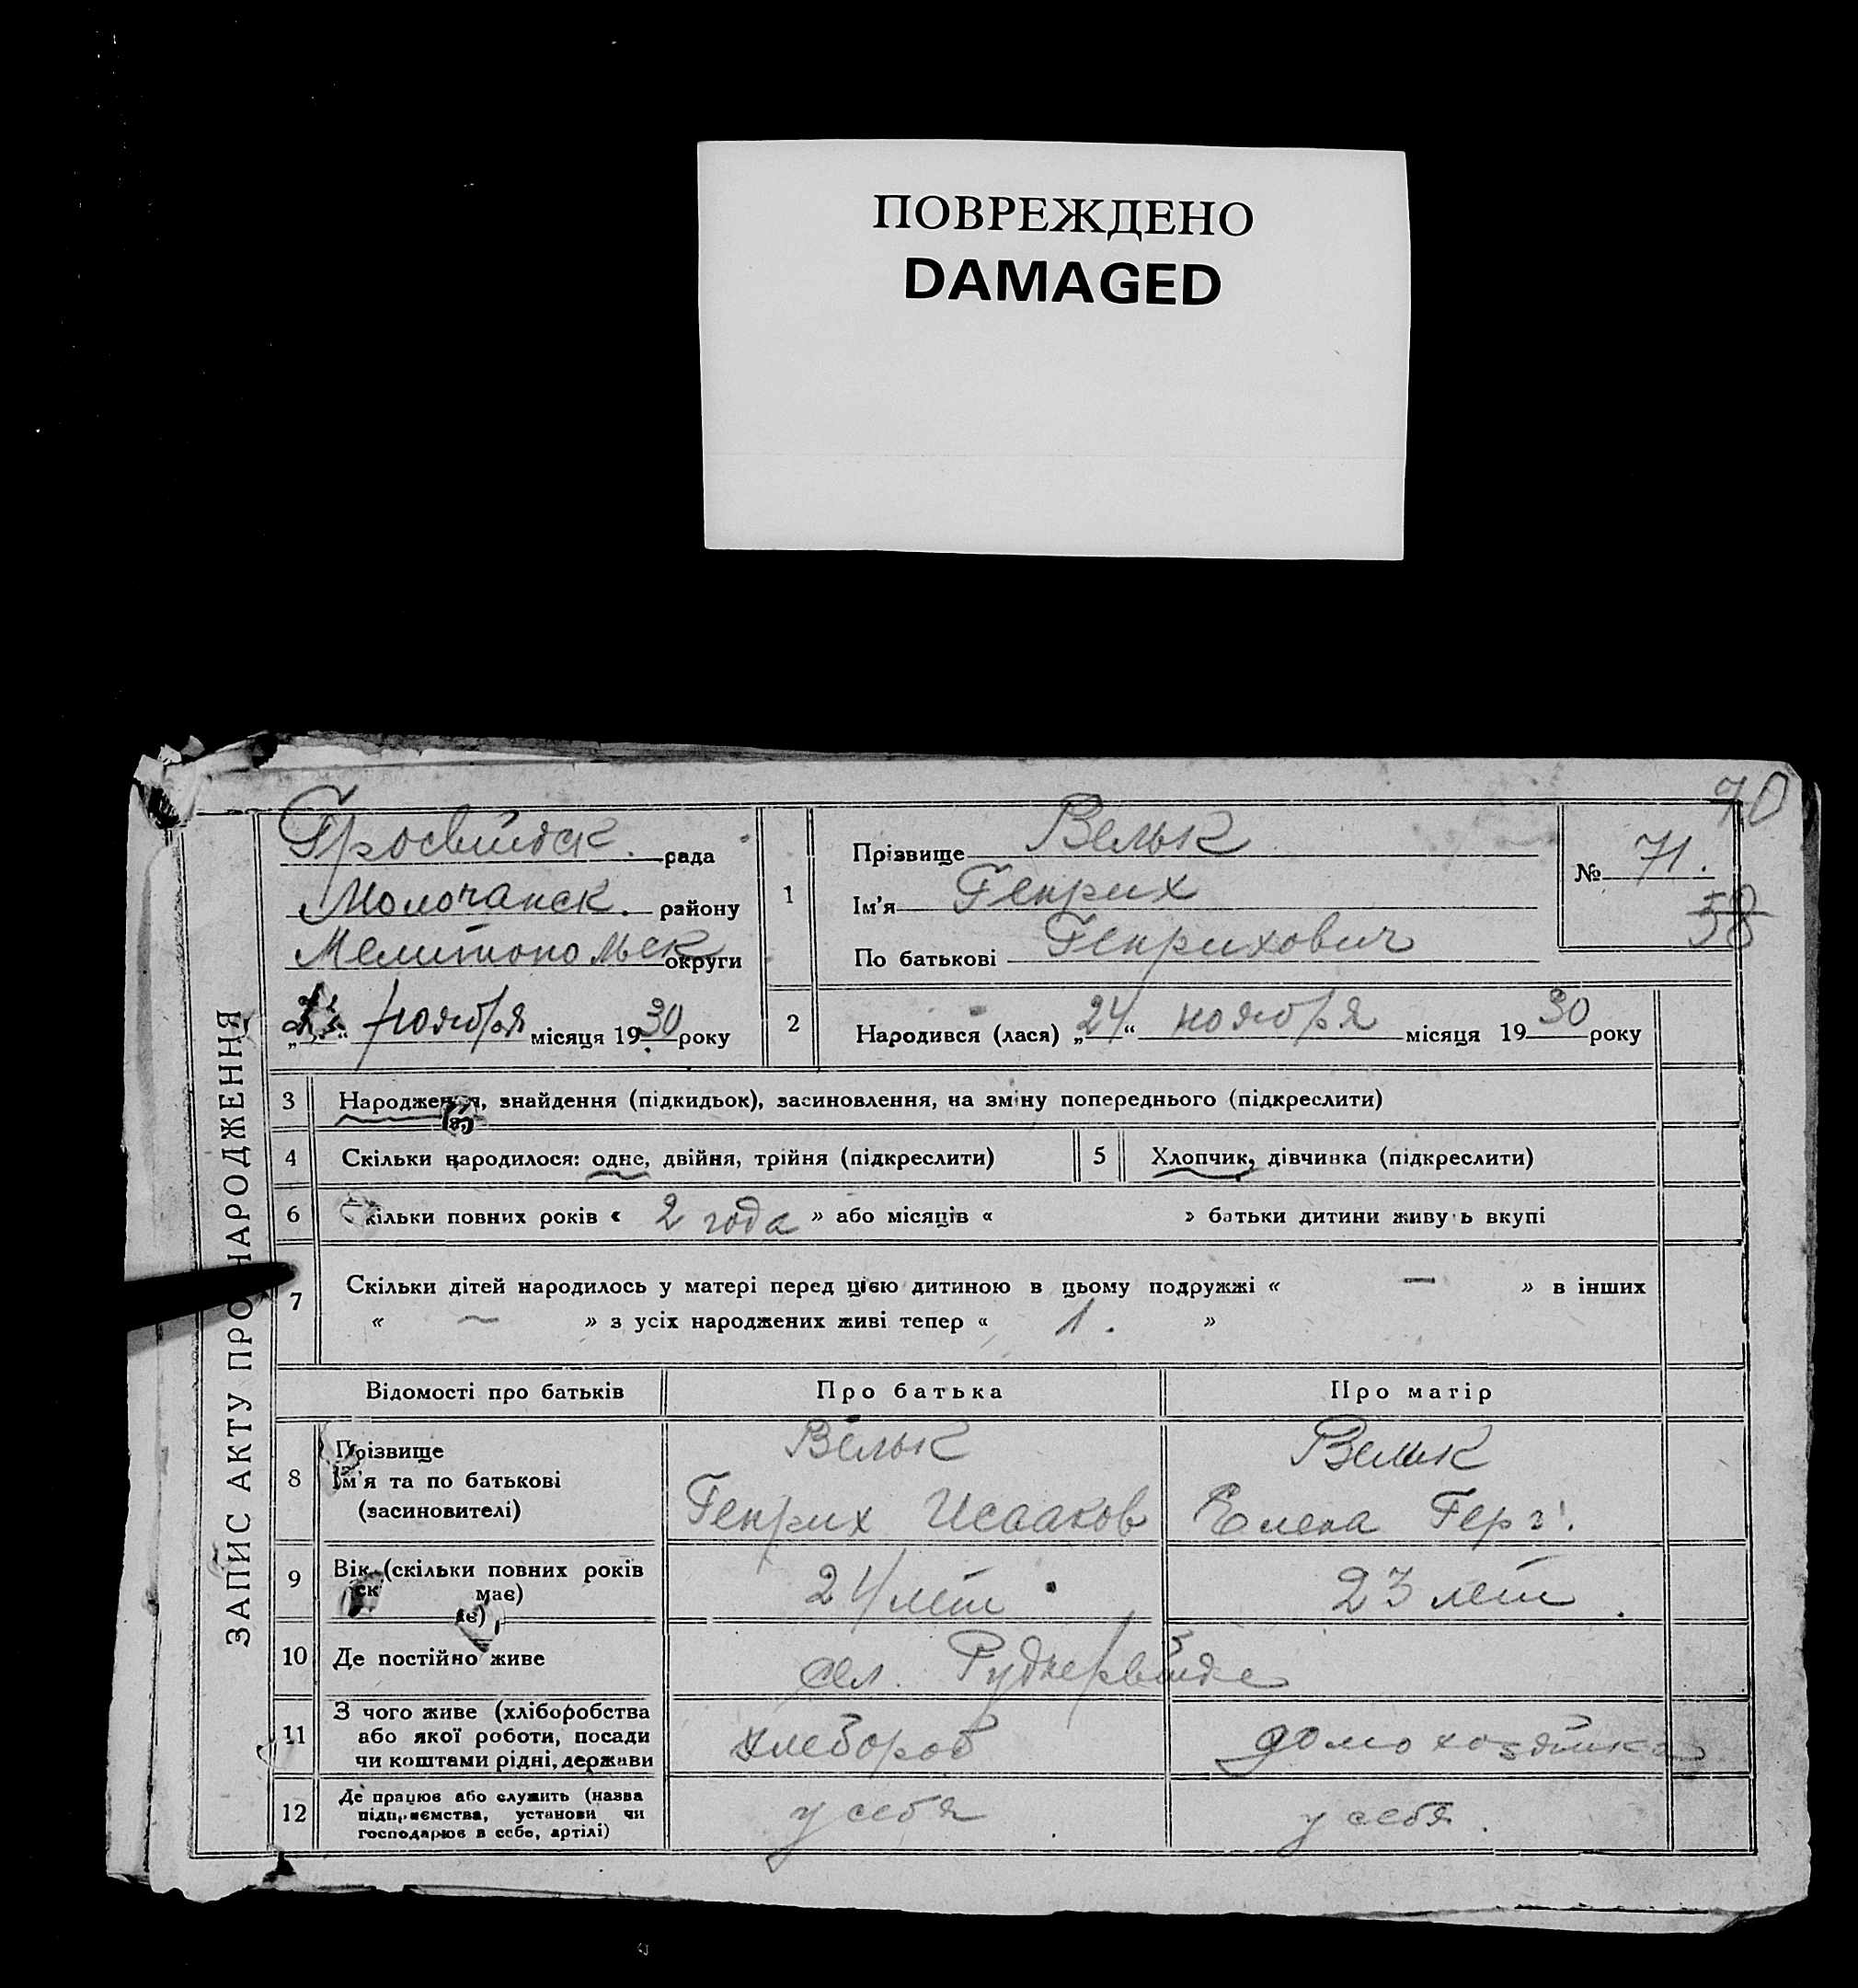 ПОВРЕЖДЕНО
DAMAGED
70
Гросвейдск. рада
Молочанск. району
Мелитопольск округи
ноября місяця 1930 року
1
Прізвище Вельк
Ім'я Генрих
По батькові Генрихович
№ 71.
58
2
Народився (лася) „24“ ноября місяця 1930 року
ЗАПИС АКТУ ПРО НАРОДЖЕННЯ
3 Народження, знайдення (підкидьок), засиновлення, на зміну попереднього (підкреслити)
4 Скільки народилося: одне, двійня, трійня (підкреслити) 5 Хлопчик, дівчинка (підкреслити)
6 Скільки повних років « 2 года » або місяців « » батьки дитини живуть вкупі
7 Скільки дітей народилось у матері перед цією дитиною в цьому подружжі « — » в інших
« ~ » з усіх народжених живі тепер « 1. »
Відомості про батьків Про батька Про матір
8 Прізвище Вельк Вельк
Ім'я та по батькові
(засиновителі) Генрих Исааков Елена Герг.
9 Вік (скільки повних років
має) 24 лет 23 лет.
10 Де постійно живе сел. Руднервейде
11 З чого живе (хліборобства
або якої роботи, посади
чи коштами рідні, держави хлебороб домохозяйка
12 Де працює або служить (назва
підприємства, установи чи
господарює в себе, артілі) у себя у себя.